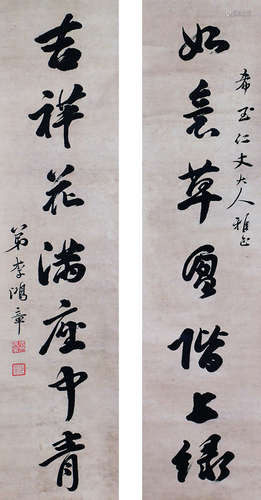 希玉仁丈大人雅正
如意草圓階上綠
吉祥花滿座中青
弟李鴻章